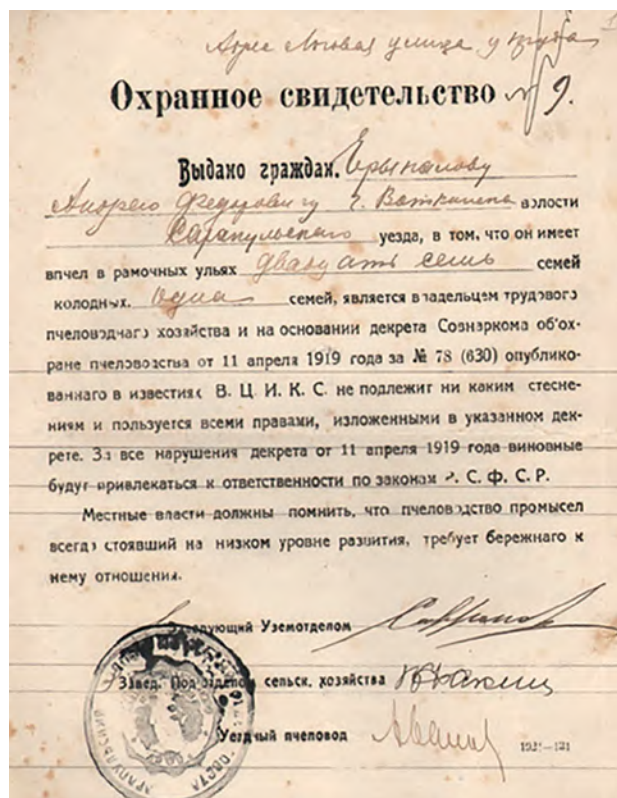 Адрес Логовая улица у пруда
Охранное свидетельство № 9.
Выдано граждан.
Андрею Федоровичу г. Воткинска волости
Сарапульского уезда, в том, что он имеет
впчел в рамочных ульях двадцать семь семей
колодных. Одна семей, является владельцем трудового
пчеловоднаго хозяйства и на основании декрета Совнаркома об'ох-
ране пчеловодства от 11 апреля 1919 года за № 78 (630) опублико-
ваннаго в известиях В. Ц. И. К. С. не подлежит ни каким стесне-
ниям и пользуется всеми правами, изложенными в указанном дек-
рете. За все нарушения декрета от 11 апреля 1919 года виновные
будут привлекаться к ответственности по законам Р. С. Ф. С. Р.
Местные власти должны помнить, что пчеловодство промысел
всегда стоявший на низком уровне развития, требует бережнаго к
нему отношения.
Заведующий Уземотделом
Завед. Подотделом сельск. хозяйства
Уездный пчеловод